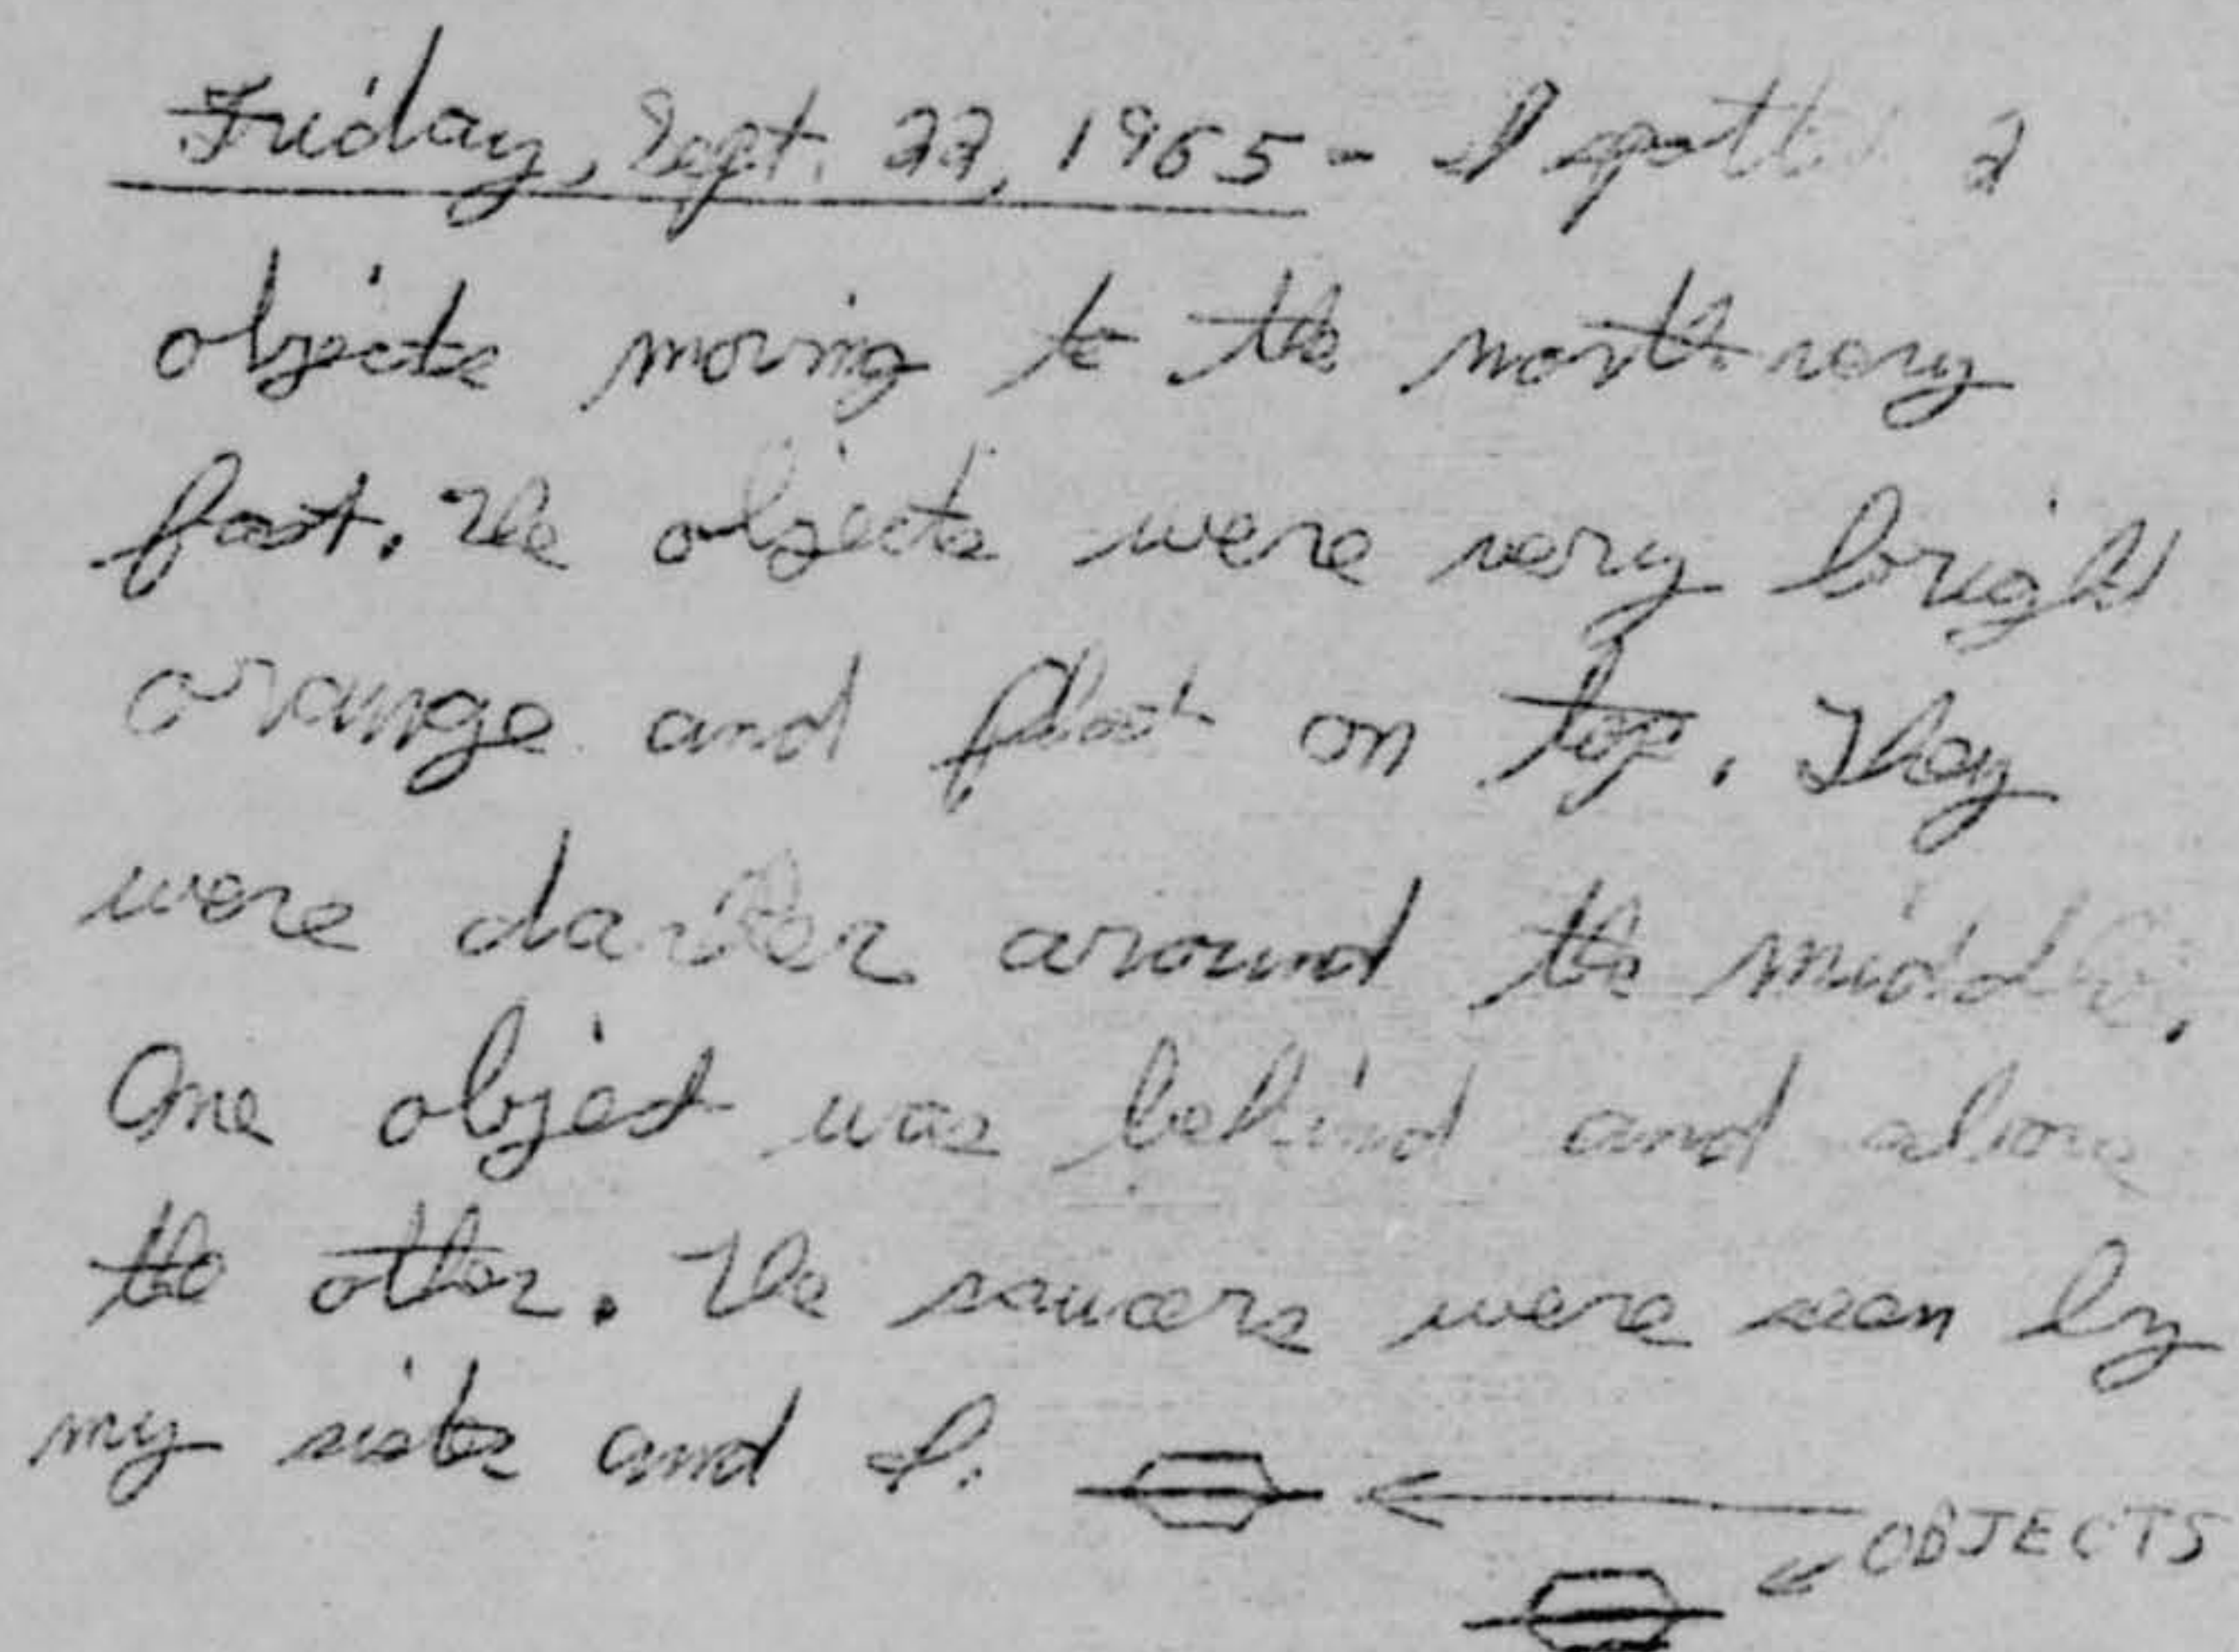 Friday, Sept. 22, 1965 - I spotted 2
objects moving to the north very
fast. The objects were very bright
orange and flat on top. They
were darker around the middle.
One object was behind and above
the other. The saucers were seen by
my sister and I.
OBJECTS